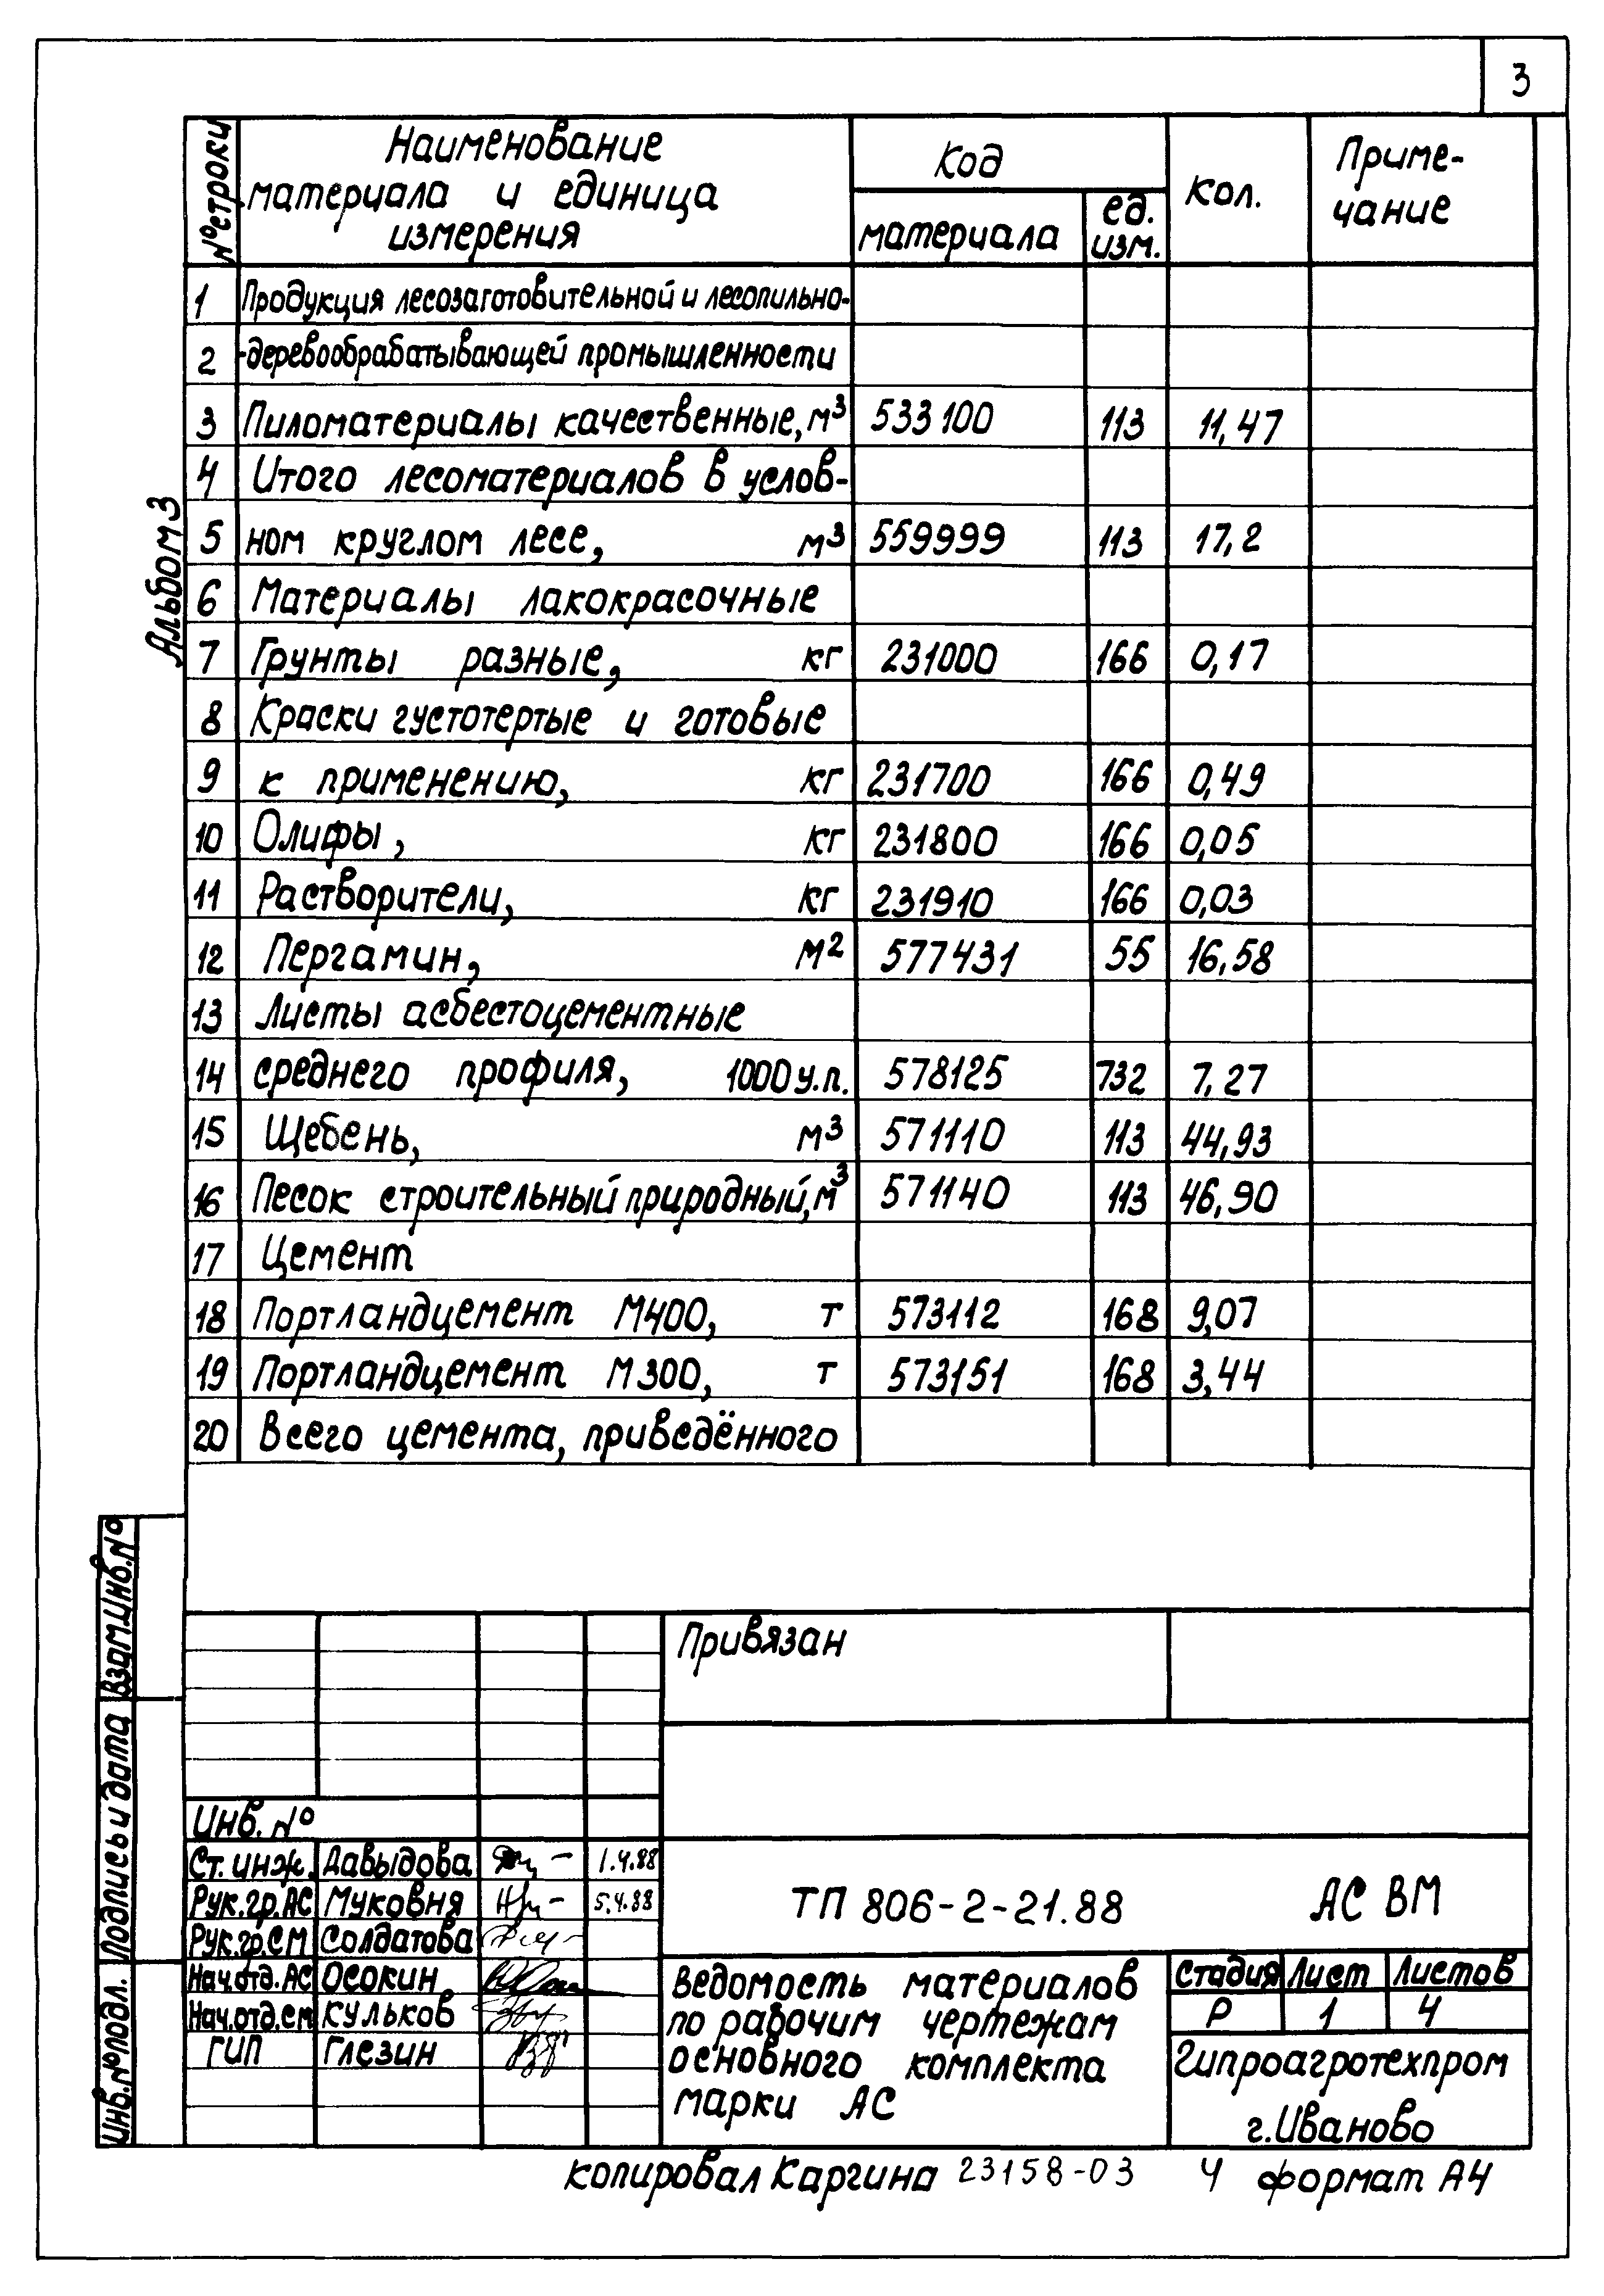 3
№ строки
Наименование
материала и единица
измерения
Код
материала
ед.
изм.
Кол.
Приме-
чание
1 Продукция лесозаготовительной и лесопильно-
2 -деревообрабатывающей промышленности
3 Пиломатериалы качественные, м³ 533100 113 11,47
4 Итого лесоматериалов в услов-
5 ном круглом лесе, м³ 559999 113 17,2
6 Материалы лакокрасочные
7 Грунты разные, кг 231000 166 0,17
8 Краски густотертые и готовые
9 к применению, кг 231700 166 0,49
10 Олифы, кг 231800 166 0,05
11 Растворители, кг 231910 166 0,03
12 Пергамин, м² 577431 55 16,58
13 Листы асбестоцементные
14 среднего профиля, 1000 у.п. 578125 732 7,27
15 Щебень, м³ 571110 113 44,93
16 Песок строительный природный, м³ 571140 113 46,90
17 Цемент
18 Портландцемент М400, т 573112 168 9,07
19 Портландцемент М300, т 573151 168 3,44
20 Всего цемента, приведённого
Альбом 3
Взам.инв.№
Подпись и дата
Инв.№ подл.
Привязан
Инв. №
Ст. инж. Давыдова 1.4.88
Рук.гр.АС Муковня 5.4.88
Рук.гр.СМ Солдатова
Нач.отд.АС Осокин
Нач.отд.СМ Кульков
ГИП Глезин
ТП 806-2-21.88 АС ВМ
Ведомость материалов
по рабочим чертежам
основного комплекта
марки АС
Стадия Лист Листов
Р 1 4
Гипроагротехпром
г.Иваново
копировал Каргина 23158-03 4 формат А4